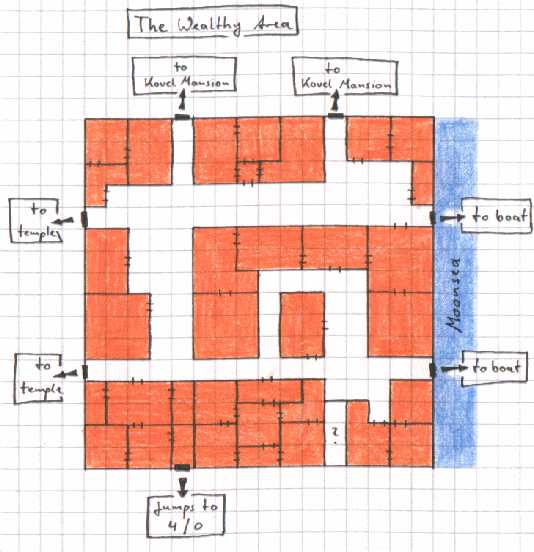 The Wealthy Area
to
Kovel Mansion
to
Kovel Mansion
to
temple
to boat
Moonsea
to
temple
to boat
?
Jumps to
4/0